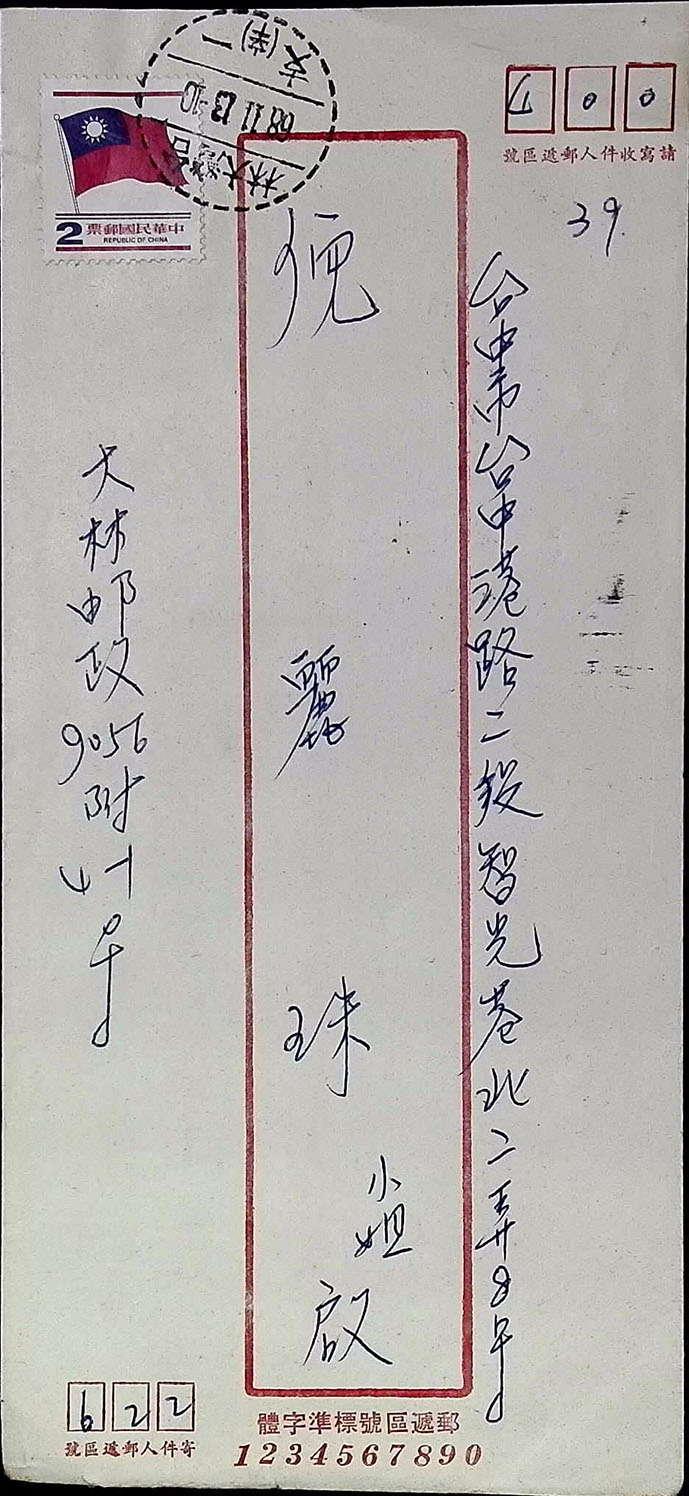 400
號區遞郵人件收寫請
39.
台中市台中港路二段智光巷北二弄8号
倪麗珠小姐啟
大林邮政9056附4-1号
622
號區遞郵人件寄
體字準標號區遞郵
1234567890
票郵國民華中
REPUBLIC OF CHINA
2
68.11.13-10